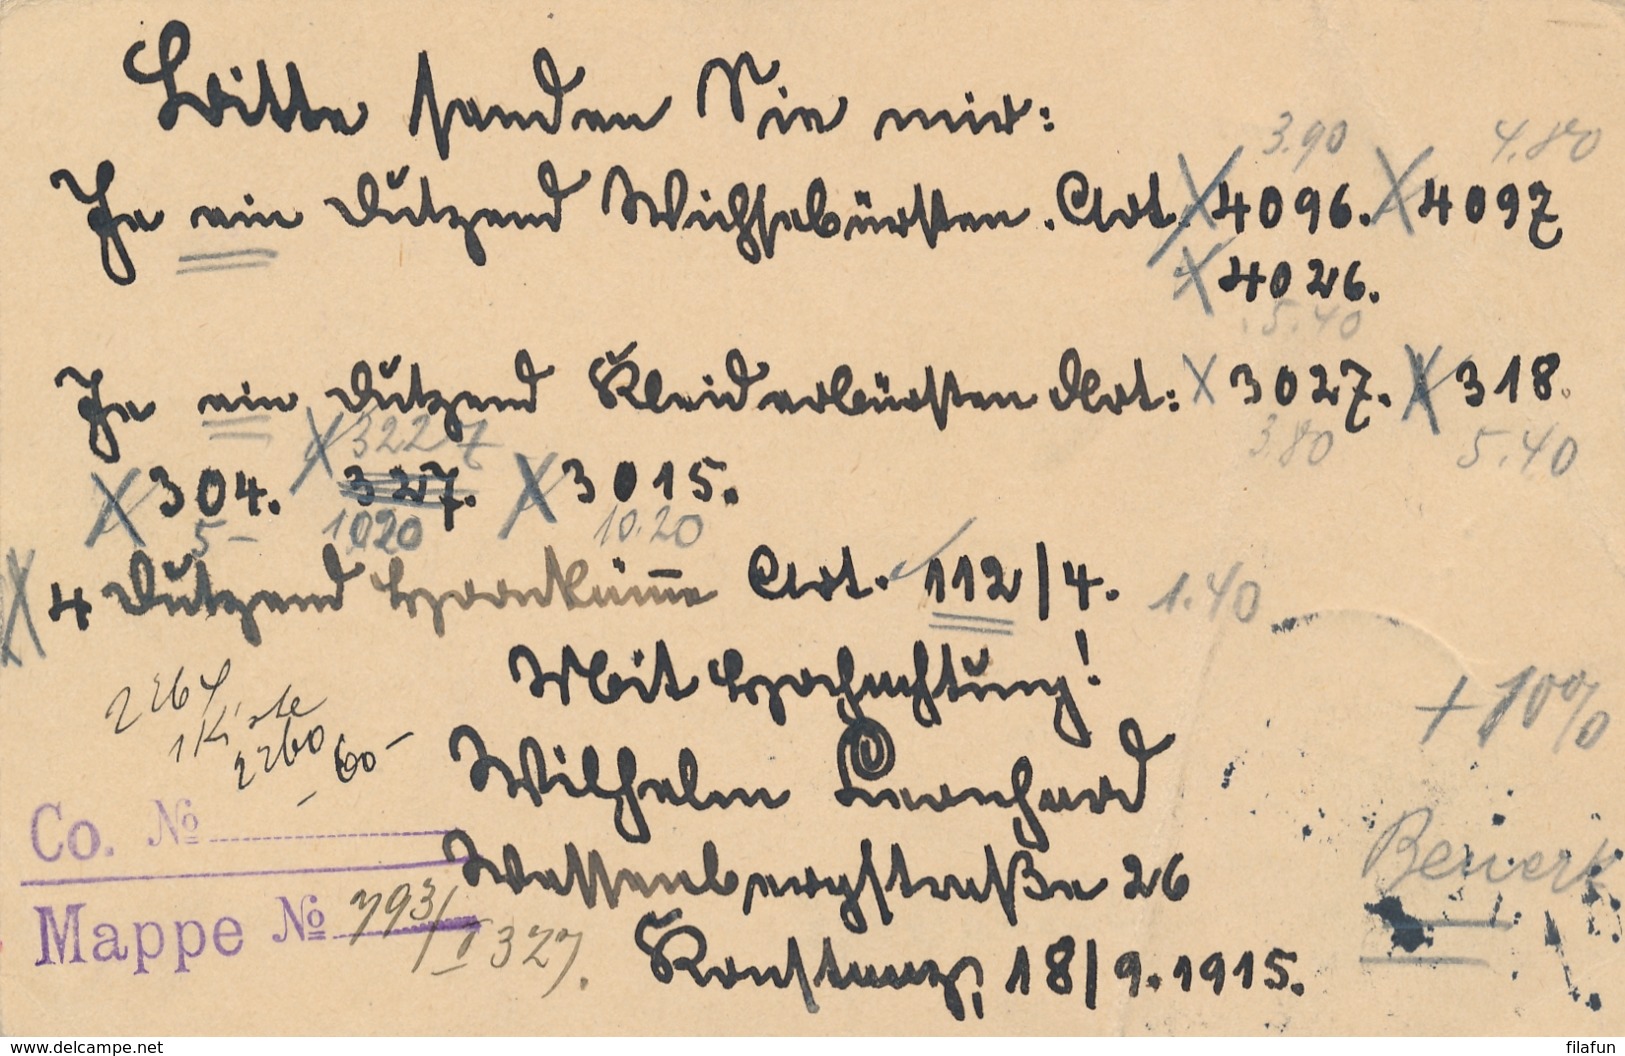 Bitte senden Sie mir:
3.90 4.80
Je ein Dutzend Wichsebürsten. Art. X 4096. X 4097
X 4026.
5.40
Je ein Dutzend Kleiderbürsten Art: X 3027. X 318.
X 3227 3.80 5.40
X 304. 327. X 3015.
5- 1020 10.20
X 4 Dutzend Hornkäm̅e Art. 112/4. 1.40
Mit Hochachtung!
+ 10%
1 Kiste
2260
60-
Wilhelm Leonhard
Co. No
Wessenbergstraße 26
Mappe No 793/I 327.
Konstanz, 18/9.1915.
www.delcampe.net filafun